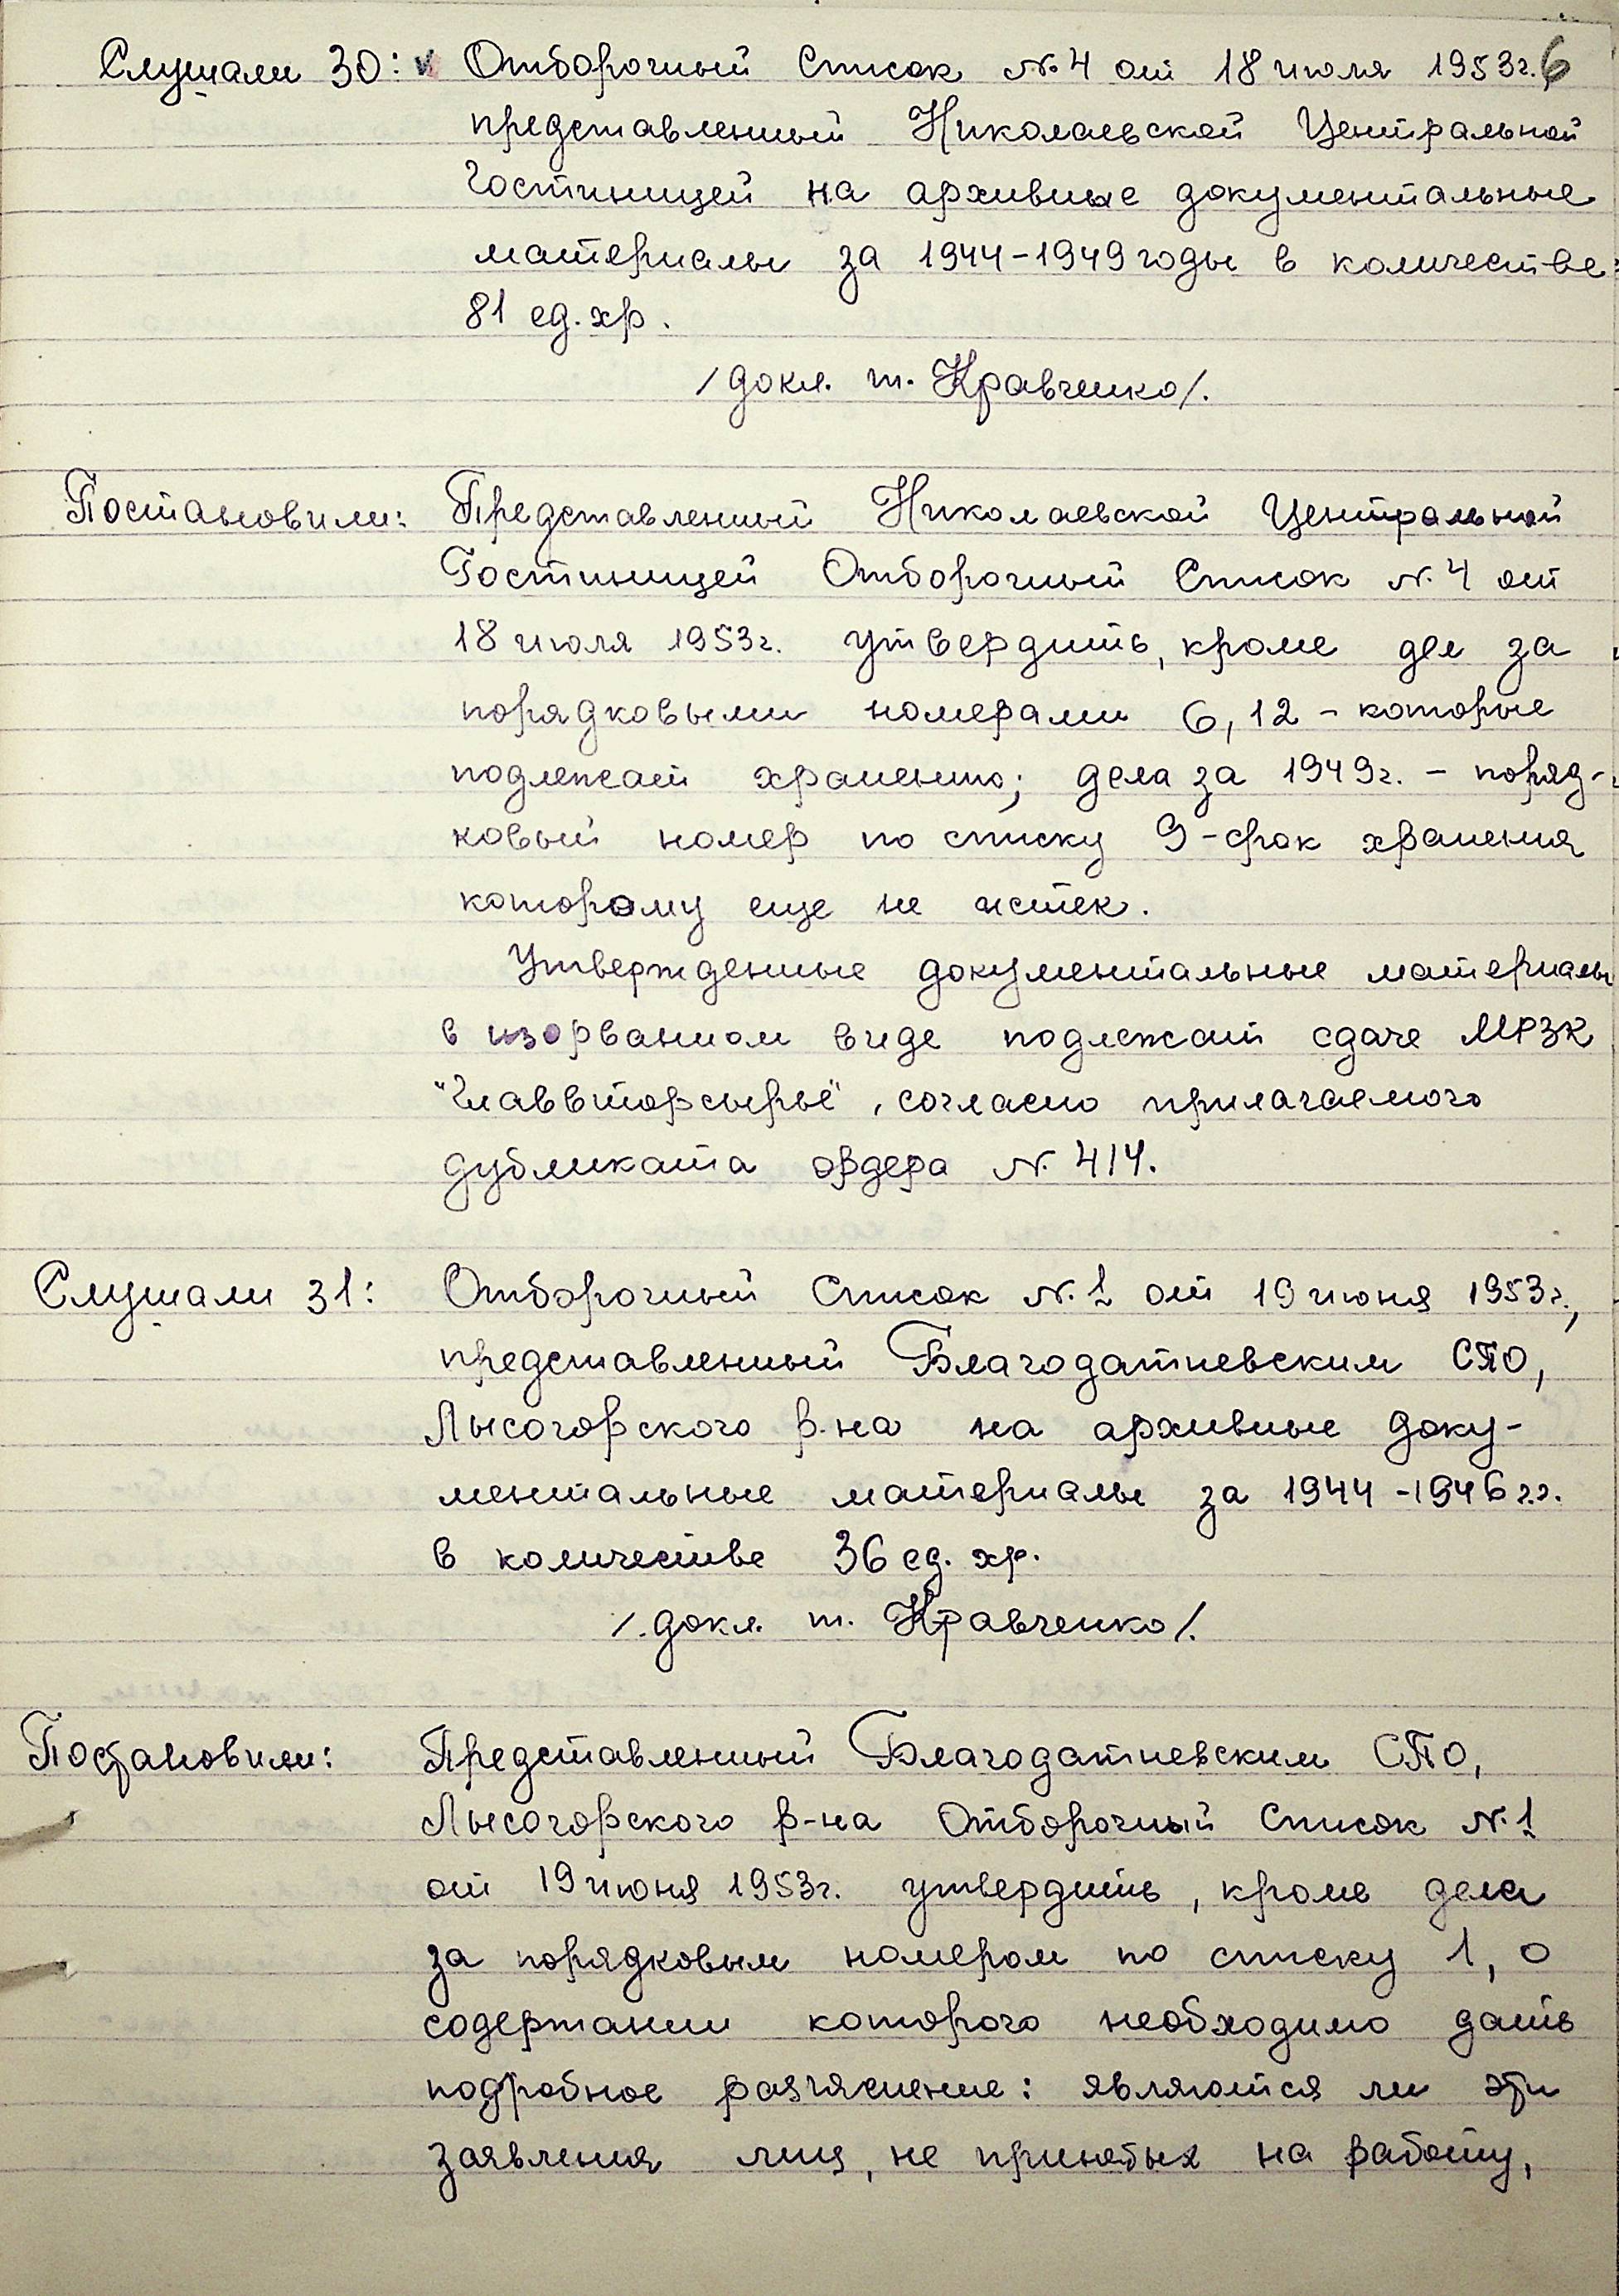 6
Слушали 30: Отборочный Список №4 от 18 июля 1953г.
представленный Николаевской Центральной
Гостиницей на архивные документальные
материалы за 1944-1949 годы в количестве:
81 ед. хр.
/докл. т. Кравченко/.
Постановили: Представленный Николаевской Центральной
Гостиницей Отборочный Список №4 от
18 июля 1953г. утвердить, кроме дел за
порядковыми номерами 6, 12 - которые
подлежат хранению; дела за 1949г. - поряд-
ковый номер по списку 9 - срок хранения
которому еще не истек.
Утвержденные документальные материалы
в изорванном виде подлежат сдаче МРЗК
"Главвторсырьё", согласно прилагаемого
дубликата ордера № 414.
Слушали 31: Отборочный Список №1 от 19 июня 1953г.,
представленный Благодатневским СПО,
Лысогорского р-на на архивные доку-
ментальные материалы за 1944-1946 г.г.
в количестве 36 ед. хр.
/. докл. т. Кравченко/.
Постановили: Представленный Благодатневским СПО,
Лысогорского р-на Отборочный Список №1
от 19 июня 1953г. утвердить, кроме дела
за порядковым номером по списку 1, о
содержании которого необходимо дать
подробное разъяснение: являются ли эти
заявления лиц, не принятых на работу,